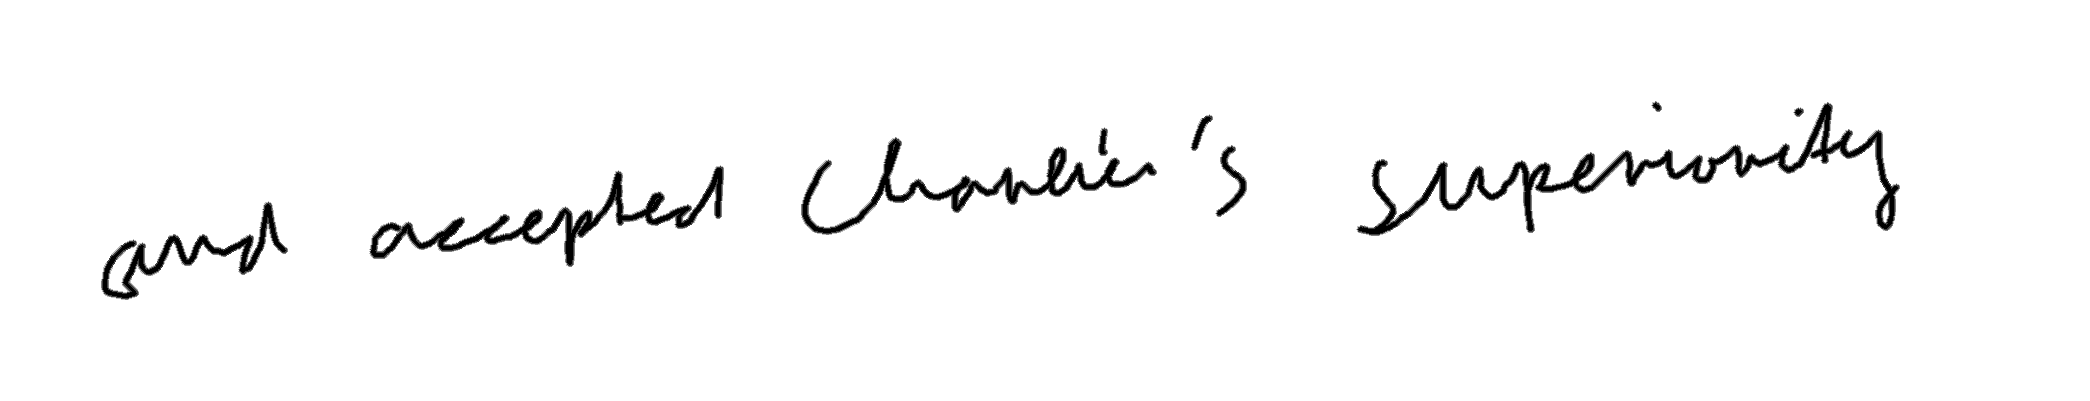 and accepted Charlie's superiority